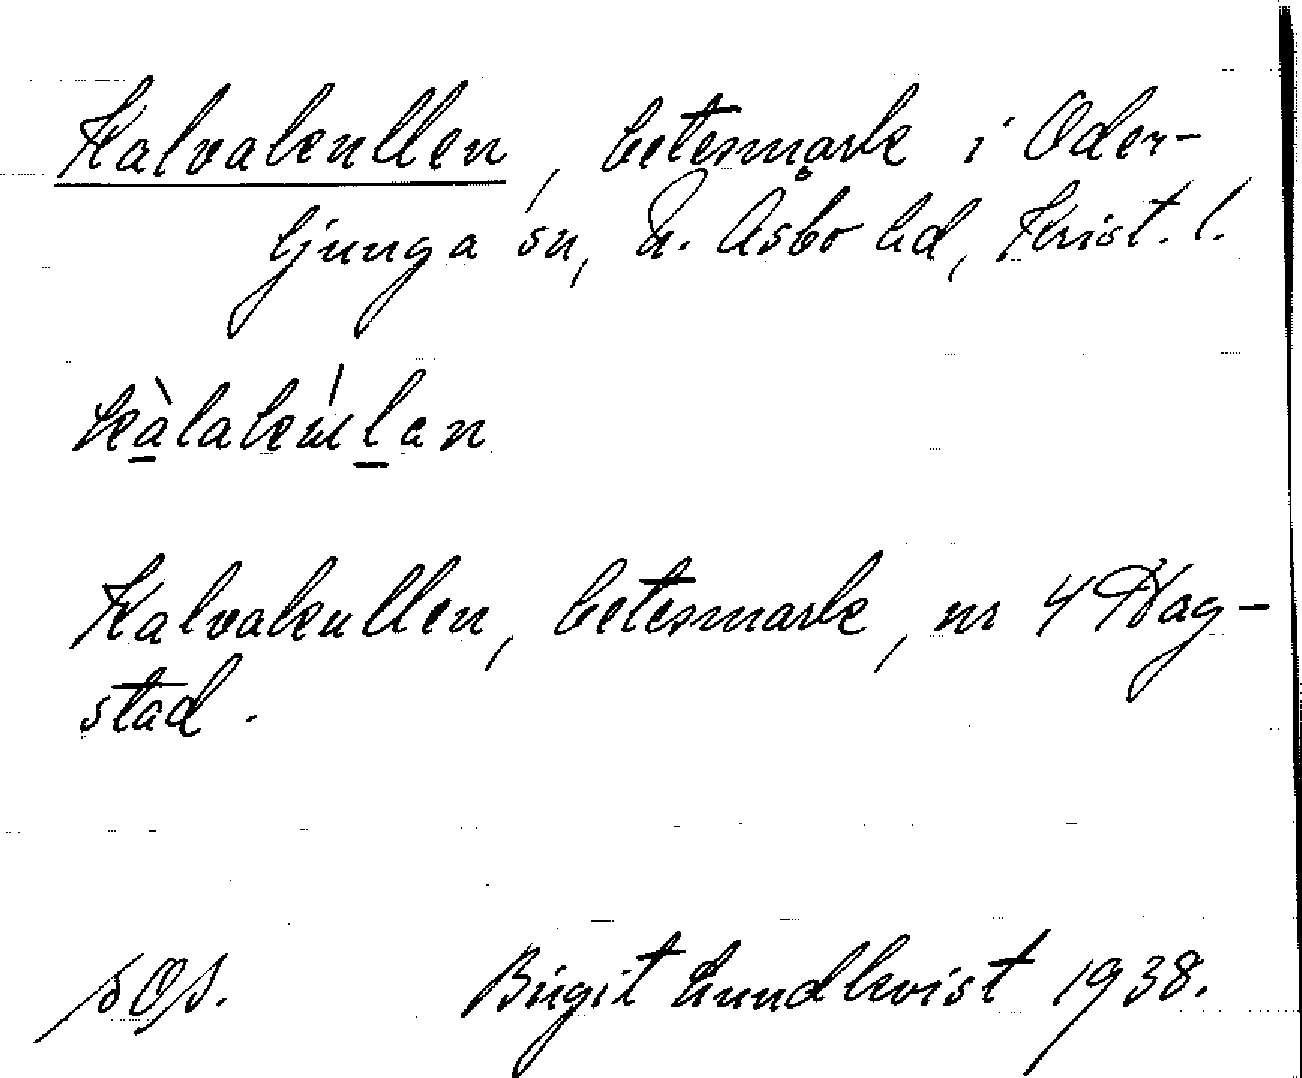 Kalvakullen, betesmark i Oder-
ljunga sn, N. Åsbo hd, Krist. l.
kàlakúlan
Kalvakullen, betesmark, nr 4 Hag-
stad.
Birgit Lundkvist 1938.